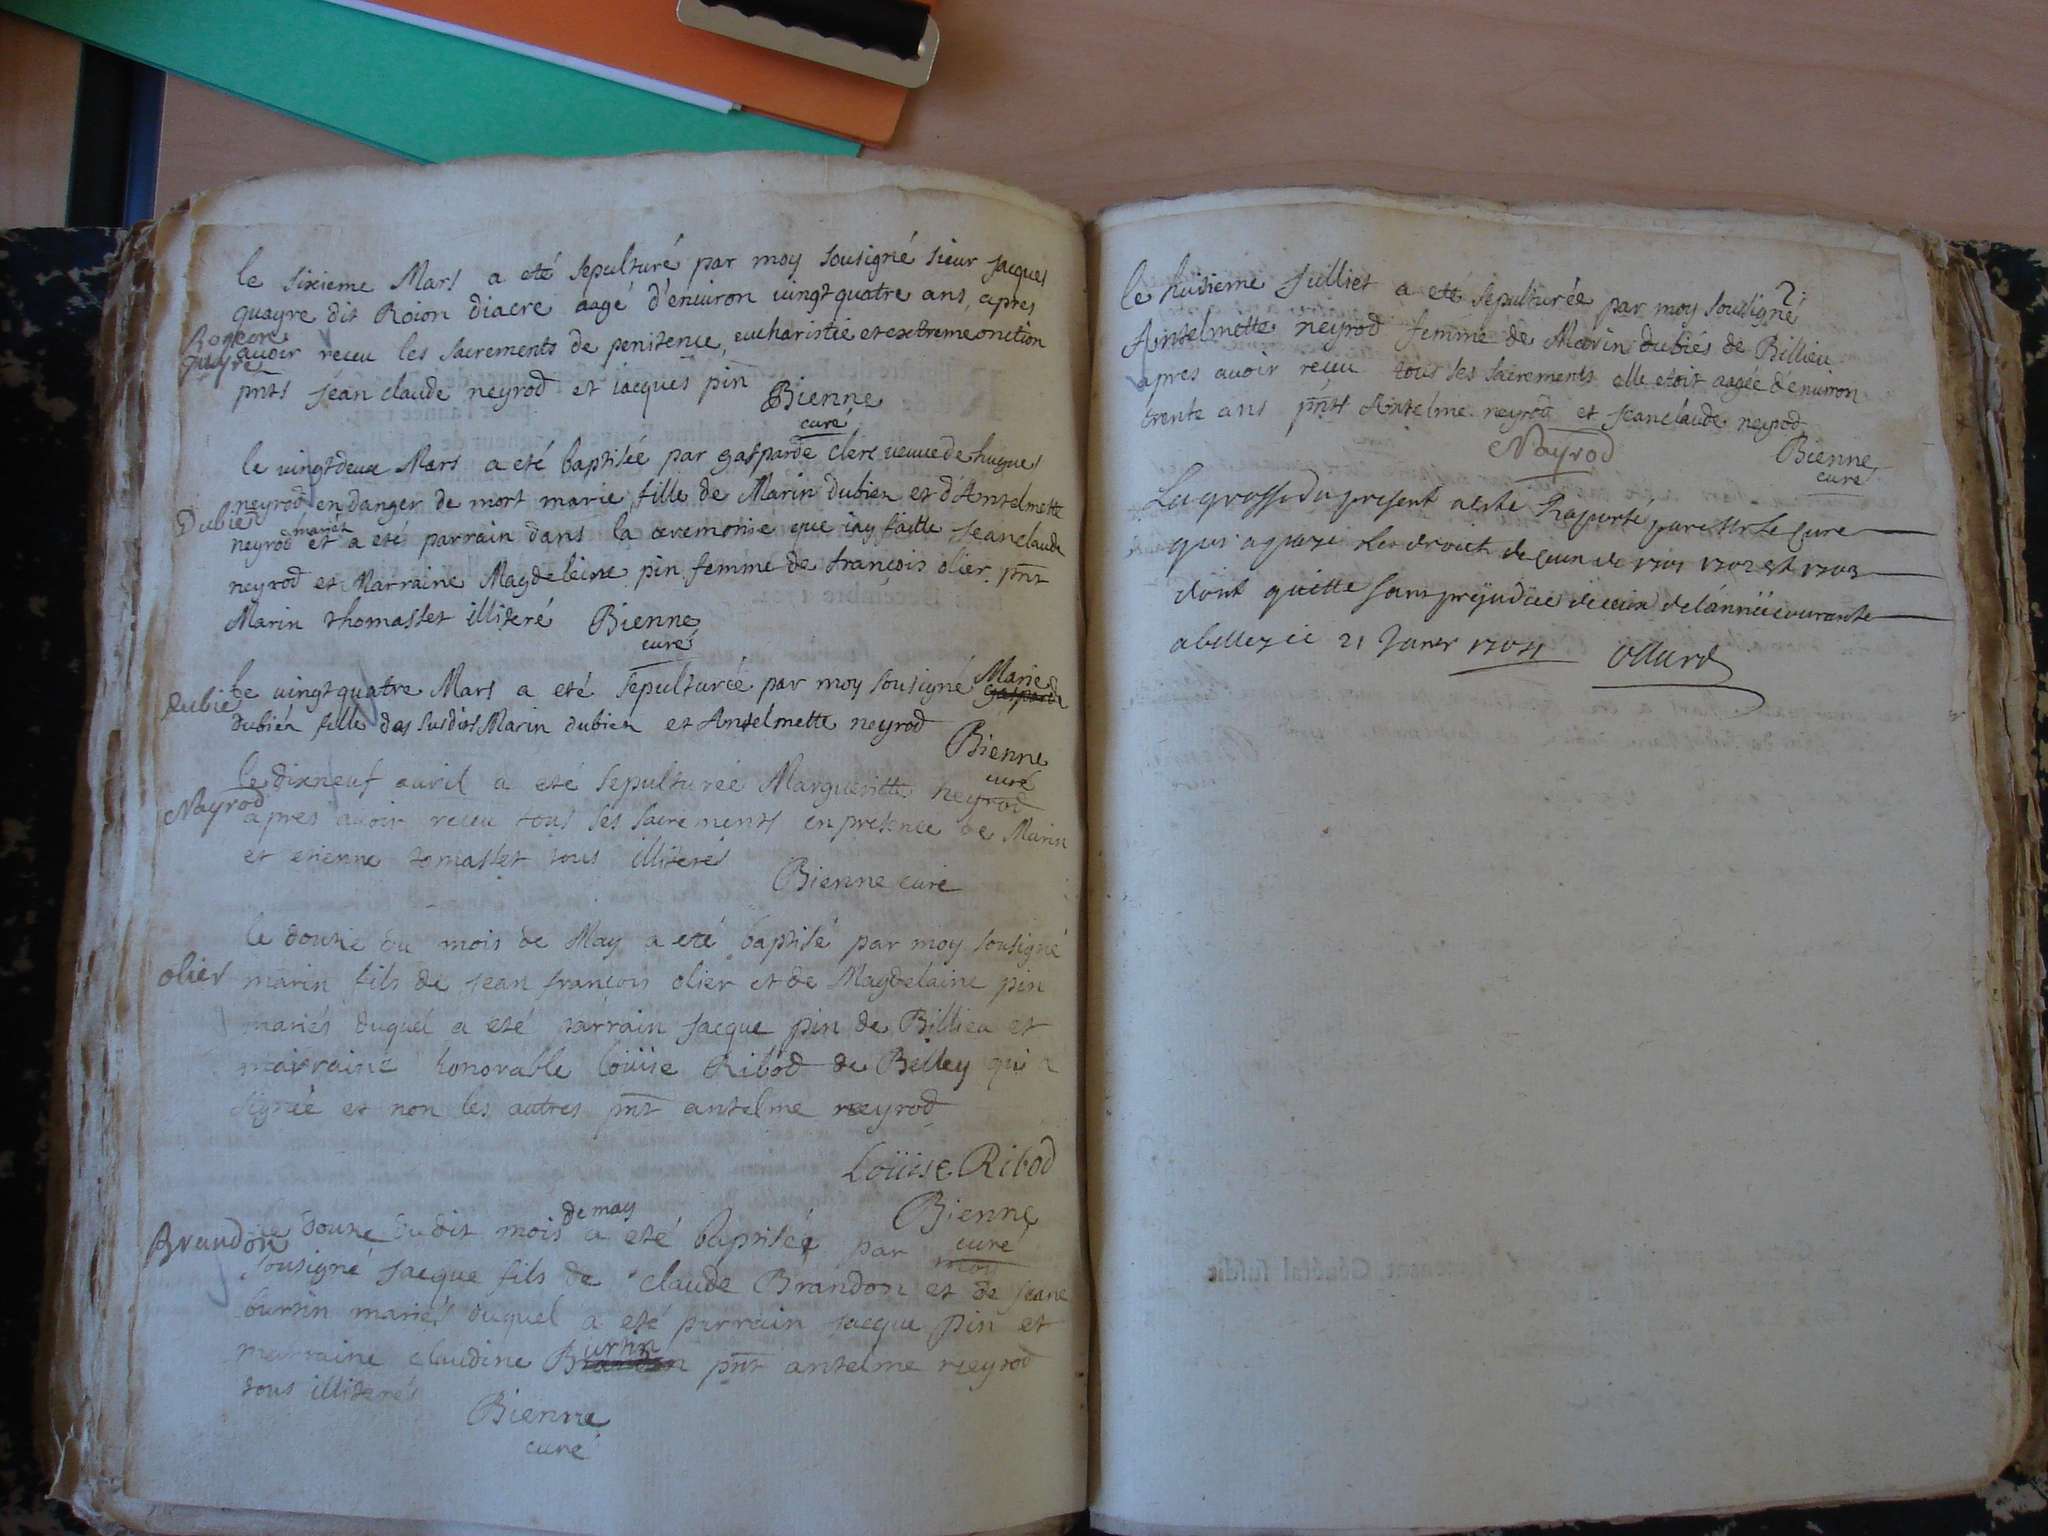 le sixieme Mars a eté sepulturé par moy sousigné sieur jacques
quayre dit Roion diacre aagé d'enuiron uingt quatre ans, apres
auoir receu les sacrements de penitence, eucharistie et extreme onction
quayre
pnts jean claude neyrod et iacques pin
Bienne
curé
le uingtdeux Mars a eté baptisée par gasparde clerc ueuue de hugues
neyrod en danger de mort marie fille de Marin dubien et d'Antelmette
Dubien
neyrod mariés et a eté parrain dans la ceremonie que iay faitte jeanclaude
neyrod et Marraine Magdeleine pin femme de françois olier pnt
Marin thomasset illiteré Bienne
curé
le uingtquatre Mars a eté sepulturée par moy sousigné Marie gasparde
dubien
dubien fille des susdits Marin dubien et Antelmette neyrod
Bienne
curé
le dixneuf auril a eté sepulturée Margueritte neyrod
Nayrod
apres auoir receu tous ses sacrements en presence de Marin
et etienne tomasset tous illiterés
Bienne curé
le douze du mois de May a eté baptisé par moy sousigné
olier marin fils de jean françois olier et de Magdelaine pin
mariés duquel a eté parrain jacque pin de Billieu et
marraine honorable loüise Ribod de Belley qui a
signée et non les autres pnt antelme neyrod
Loüise Ribod
Bienne
curé
Brandon le douze dudit mois de may a eté baptisée par moy
sousigné jacque fils de claude Brandon et de jeane
burtin mariés duquel a eté parrain jacque pin et
marraine claudine Burtin pnt antelme neyrod
tous illiterés
Bienne
curé
le huitieme Julliet a eté sepulturée par moy sousigné
Antelmette neyrod femme de Marin dubiés de Billieu
apres auoir reçeu tous ses sacrements elle etoit aagée d'enuiron
trente ans pnts Antelme neyrod et jeanclaude neyrod
Nayrod
Bienne
curé
La grosse du present a esté Raporté par Mr Le Curé
qui a payé Les droicts de ceux de 1701 1702 et 1703
dont quitte sans prejudice de ceux de l'année courante
a belley ce 21 Janer 1704